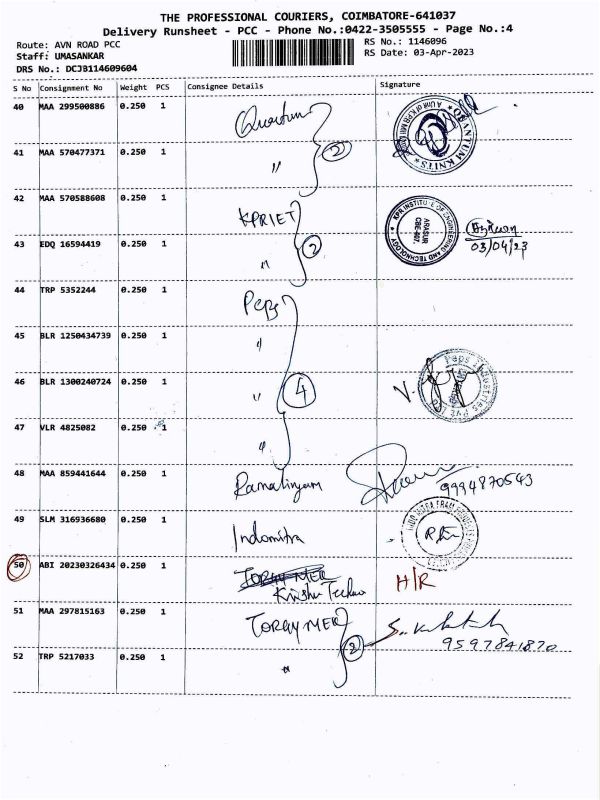 THE PROFESSIONAL COURIERS, COIMBATORE-641037
Delivery Runsheet - PCC - Phone No.:0422-3505555 - Page No.:4
Route: AVN ROAD PCC
RS No.: 1146096
Staff: UMASANKAR
RS Date: 03-Apr-2023
DRS No.: DCJB114609604
S No Consignment No Weight PCS Consignee Details Signature
40 MAA 299500886 0.250 1 Quantum
QUANTUM KNITS
41 MAA 570477371 0.250 1 " 2
42 MAA 570588608 0.250 1 KPRIET
KPR INSTITUTE OF ENGINEERING AND TECHNOLOGY
ARASUR
CBE-407.
03/04/23
43 EDQ 16594419 0.250 1 " 2
44 TRP 5352244 0.250 1 Peps
45 BLR 1250434739 0.250 1 "
46 BLR 1300240724 0.250 1 " 4
Peps Industries Pvt
47 VLR 4825082 0.250 1 "
48 MAA 859441644 0.250 1 Ramalingam
9994870543
49 SLM 316936680 0.250 1 Indomitra
50 ABI 20230326434 0.250 1 TORAY MER
Krishu Techno H/R
51 MAA 297815163 0.250 1 TORAY MER
9597841870
52 TRP 5217033 0.250 1 " 2